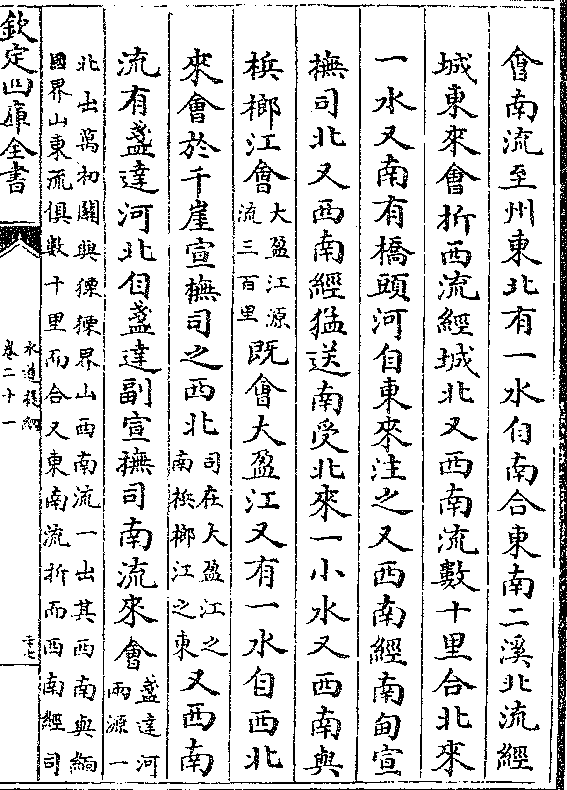 會南流至州東北有一水自南合東南二溪北流經
城東來會折西流經城北又西南流數十里合北來
一水又南有橋頭河自東來注之又西南經南甸宣
撫司北又西南經猛送南受北來一小水又西南與
梹榔江會大盈江源流三百里既會大盈江又有一水自西北
來會於千崖宣撫司之西北司在大盈江之南梹榔江之東又西南
流有盞達河北自盞達副宣撫司南流來會盞達河兩源一
北出萬初關與界山西南流一出其西南與緬
國界山東流俱數十里而合又東南流折而西南經司
欽定四庫全書
水道提綱
卷二十一